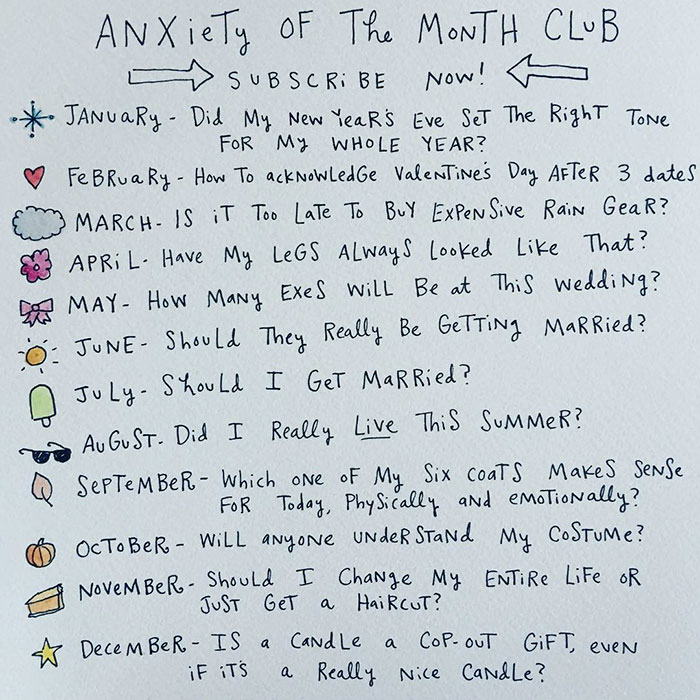 ANXieTy OF The MoNTH CLuB
SuBSCRiBE Now!
JANuaRy - Did My New YeaR's Eve SeT The RighT ToNe
FoR My WHoLe YEAR?
FeBRuaRy - How To ackNowLedge VaLeNTiNe's Day AFTeR 3 dates
MARCH - IS iT Too LaTe To Buy ExpeNSive RaiN GeaR?
APRiL - Have My LeGS ALwayS Looked Like That?
MAY - How MaNy EXeS WiLL Be at This weddiNg?
JuNE - ShouLd They ReaLLy Be GeTTiNg MaRRied?
JuLy - ShouLd I GeT MaRRied?
AuGuST - Did I ReaLLy Live This SuMMeR?
SePTeMBeR - Which oNe oF My Six coaTS MakeS SeNSe
FoR Today, PhySicaLLy aNd eMoTioNaLLy?
OCToBeR - WiLL aNyoNe uNdeRSTaNd My CoSTuMe?
NoveMBeR - ShouLd I ChaNge My ENTiRe LiFe oR
JuST GeT a HaiRcuT?
DeceMBeR - IS a CaNdLe a CoP-ouT GiFT, eveN
iF iT'S a ReaLLy Nice CaNdLe?